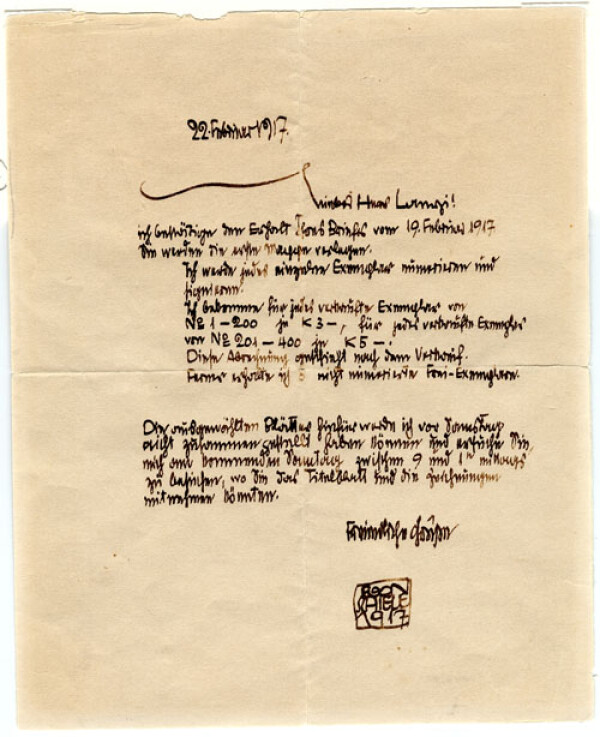 22. Februar 1917.
Lieber Herr Lanyi!
ich bestätige den Erhalt Ihres Briefes vom 19. Februar 1917
Sie werden die erste Mappe verlegen.
Ich werde jedes einzelne Exemplar numerieren und
signieren.
Ich bekomme für jedes verkaufte Exemplar von
№ 1 – 200 je K 3 –, für jedes verkaufte Exemplar
von № 201 – 400 je K 5 –.
Diese Abrechnung geschieht nach dem Verkauf.
Ferner erhalte ich 5 nicht numerierte Frei-Exemplare.
Die ausgewählten Blätter hiefür werde ich vor Samstag
nicht zusammengestellt haben können und ersuche Sie,
mich am kommenden Samstag zwischen 9 und 1 mittags
zu besuchen, wo Sie das Titelblatt und die Zeichnungen
mitnehmen könnten.
Freundliche Grüße
EGON
SCHIELE
1917